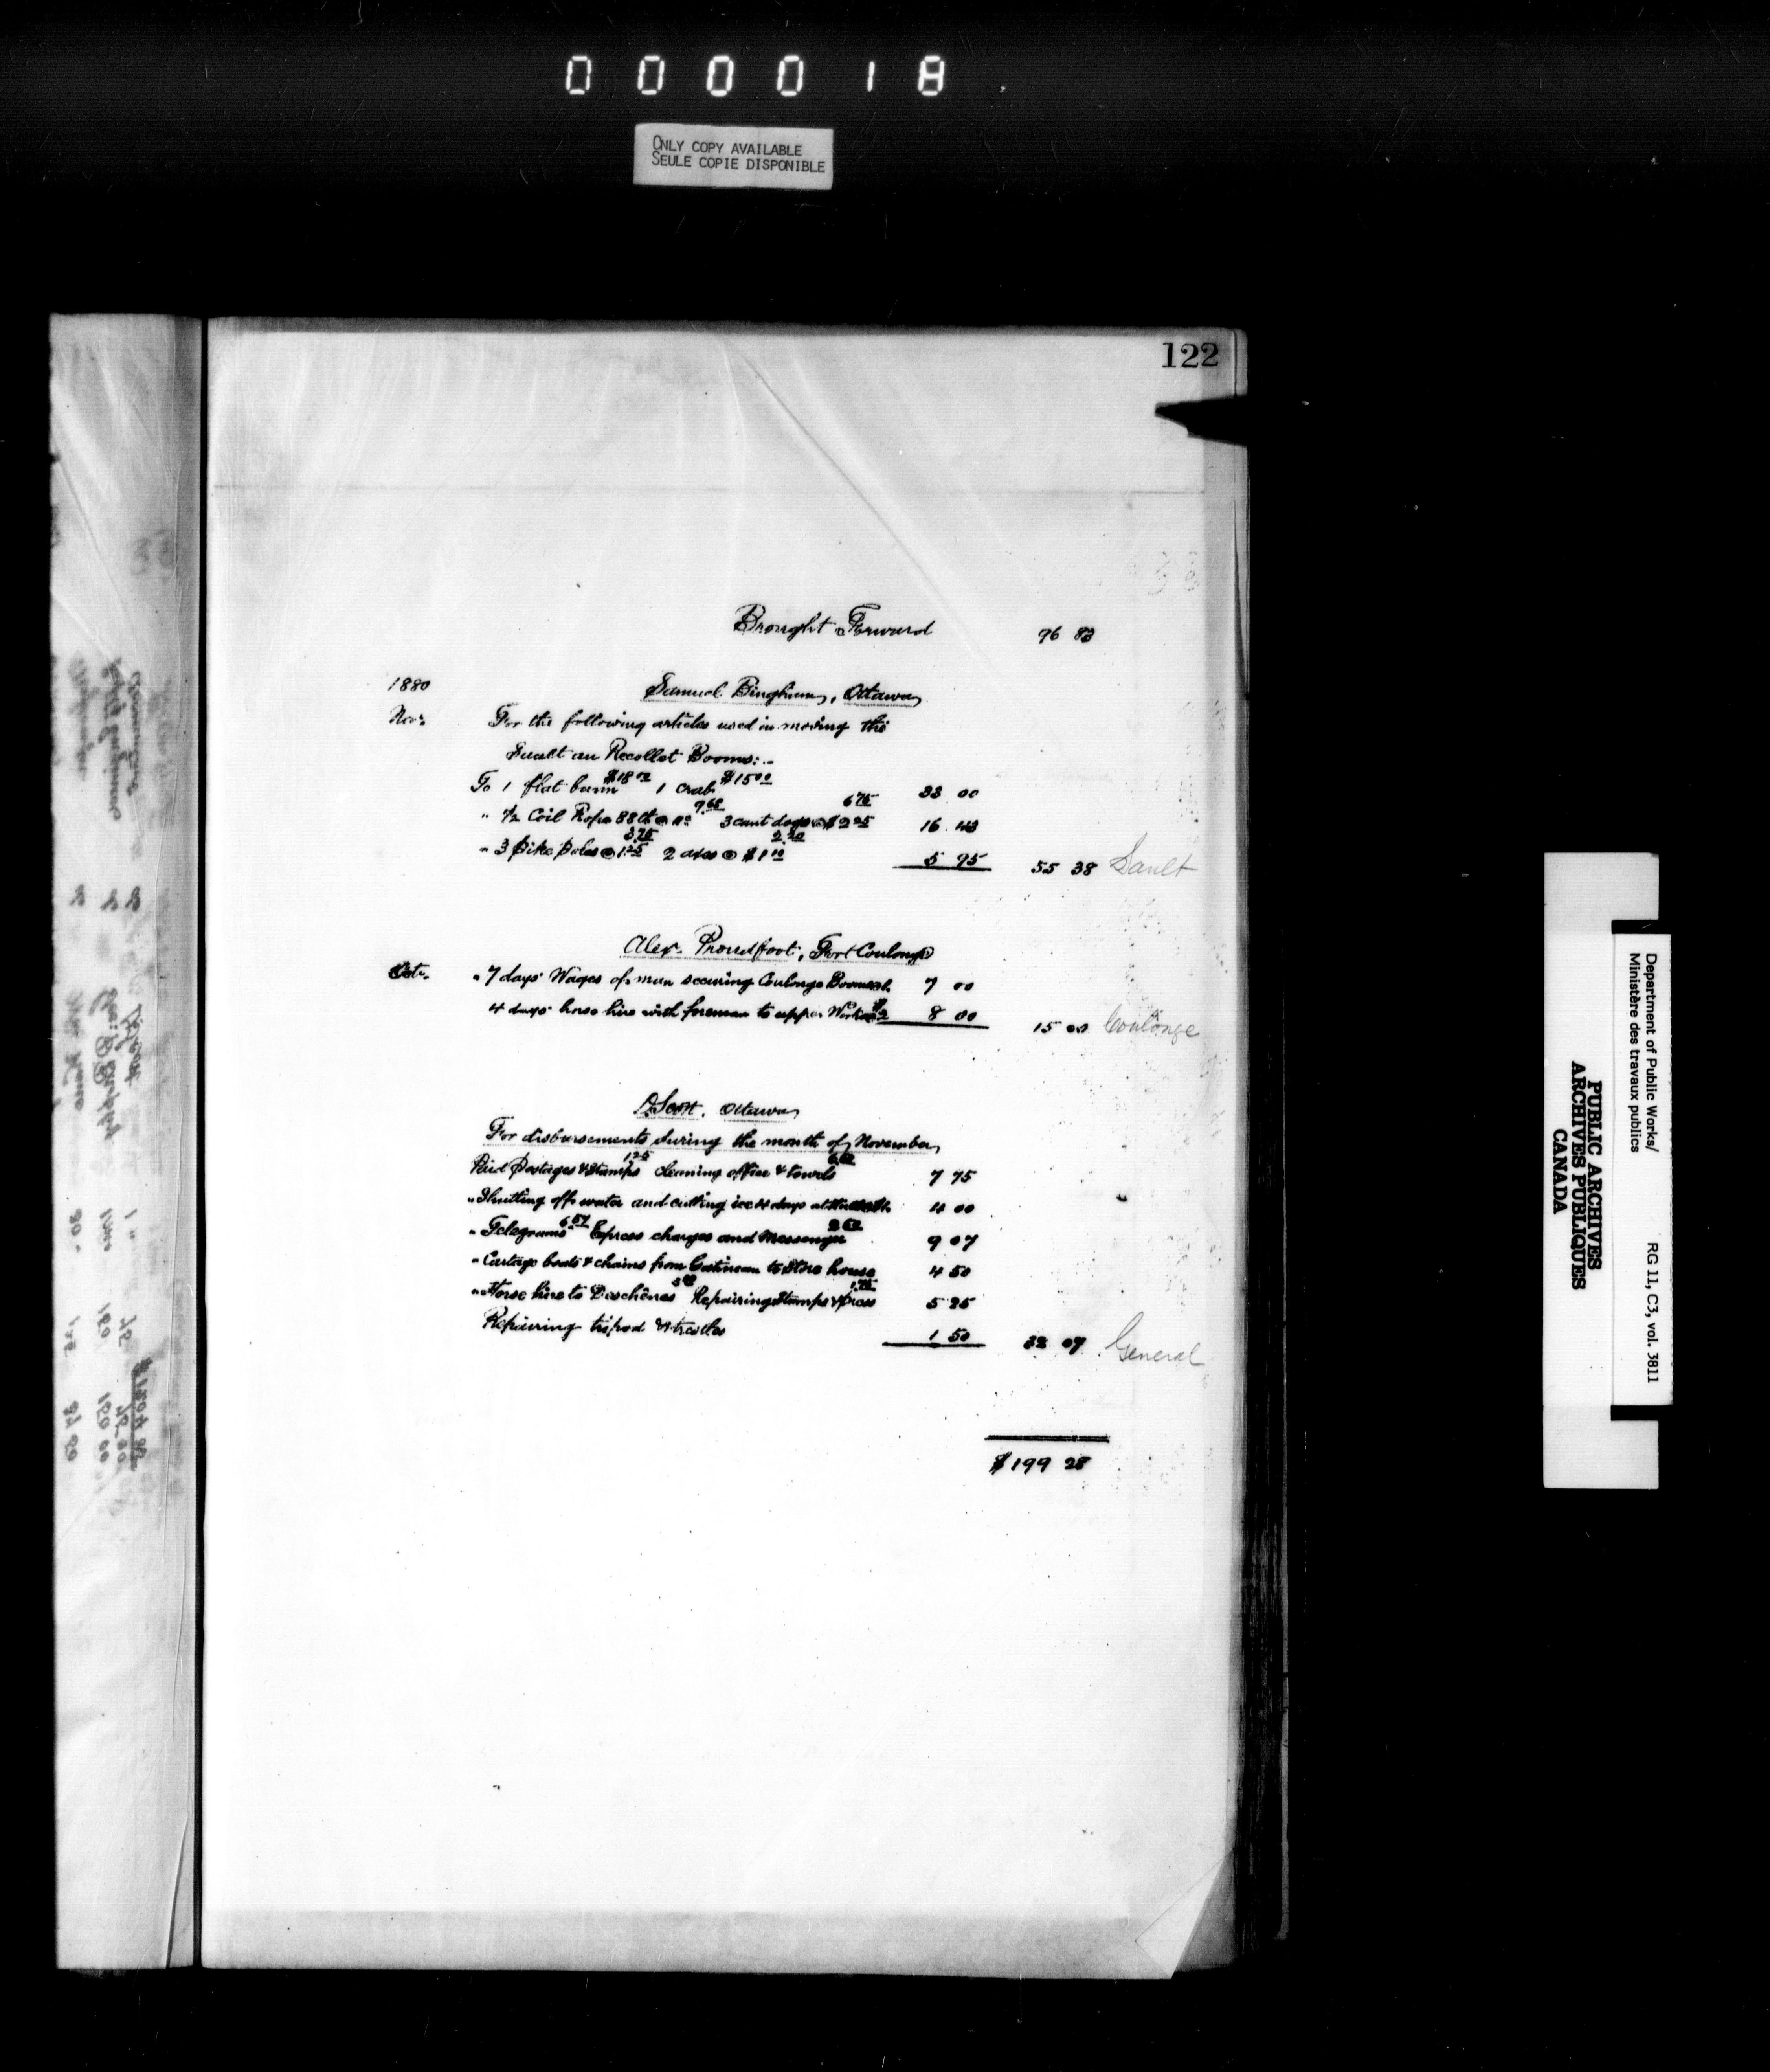 000018
ONLY COPY AVAILABLE
SEULE COPIE DISPONIBLE
122
Brought Forward 96 83
1880 Samuel Bingham, Ottawa
Novr. For the following articles used in moving the
Sault au Recollet Booms:-
$18 00 $15 00
To 1 flat 1 crab 33 00
9 68 6 75
" 1/2 Coil Rope 88 lb @ 11c 3 cant dogs @ $2 25 16 43
3 75 2 20
" 3 Pike Poles @ 1.25 2 axes @ $1 10 5 95 55 38 Sault
Alex. Proudfoot, Fort Coulonge
Oct. " 7 days' Wages of man securing Coulonge Booms 7 00
4 days' horse hire with foreman to upper Works $2 8 00 15 00 Coulonge
Scott, Ottawa
For disbursements during the month of November,
1.25 6.50
Paid Postages & Stamps Cleaning office & towels 7 75
" Shutting off water and cutting ice 4 days 4 00
6 57
" Telegrams Express charges and Messenger 9 07
" Cartage boats & chains from Gatineau to Store house 4 50
" Horse hire to Deschênes Repairing Stamps & press 5 25
Repairing tripod & trestles 1 50 32 07 General
$199 28
Department of Public Works/
Ministère des travaux publics
RG 11, C3, vol. 3811
PUBLIC ARCHIVES
ARCHIVES PUBLIQUES
CANADA